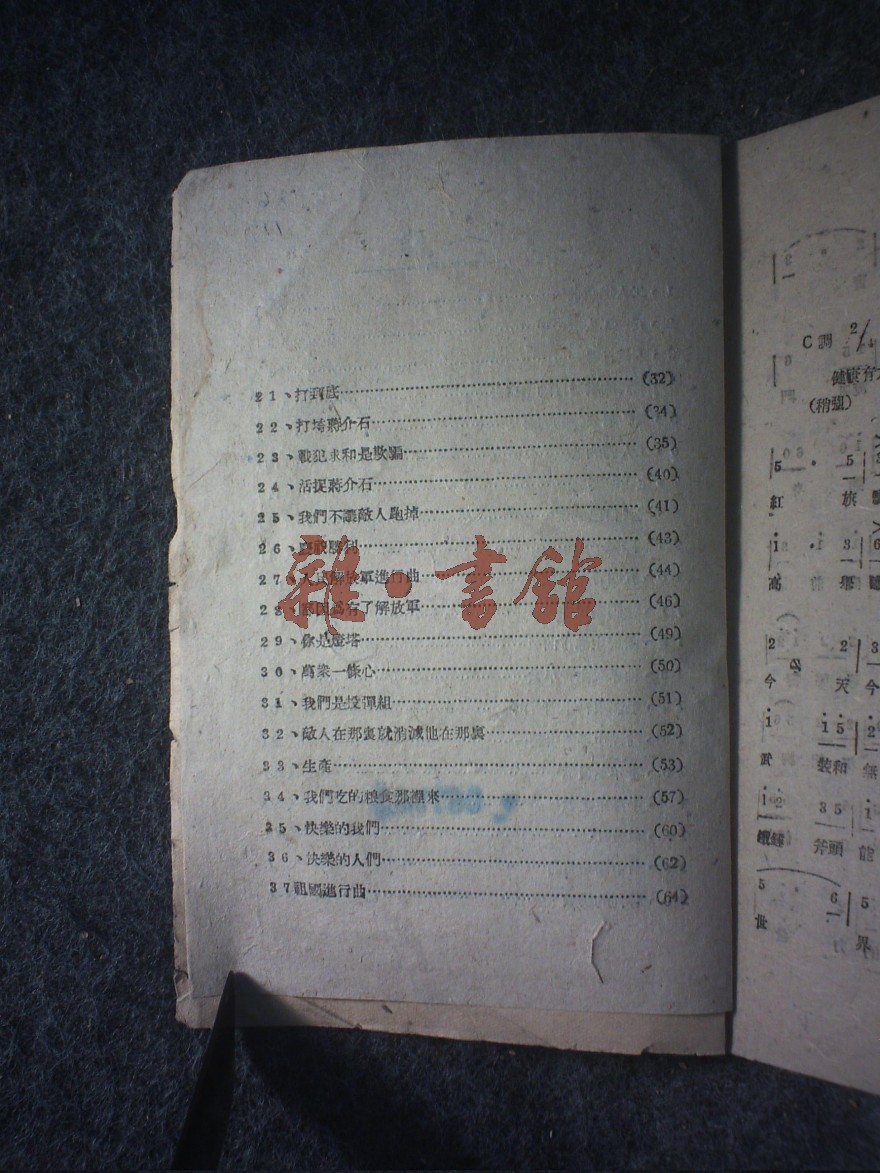 21、打到底(32)
22、打垮蔣介石(34)
23、戰犯求和是欺騙(35)
24、活捉蔣介石(40)
25、我們不讓敵人跑掉(41)
26、慶祝勝利(43)
27、人民解放軍進行曲(44)
28、有了解放軍(46)
29、你是燈塔(49)
30、萬衆一條心(50)
31、我們是投彈組(51)
32、敵人在那裏就消滅他在那裏(52)
33、生產(53)
34、我們吃的粮食那裡來(57)
35、快樂的我們(60)
36、快樂的人們(62)
37祖國進行曲(64)
雜·書舘
C調 2/4
健康有
(稍强)
5 · 5
紅 旗
i · 3 6
高 舉
2 2 3
今 天 今
i i5 2
武 裝和 無
i2 35 i
鐮錘 斧頭 能
5 6 5
世 界